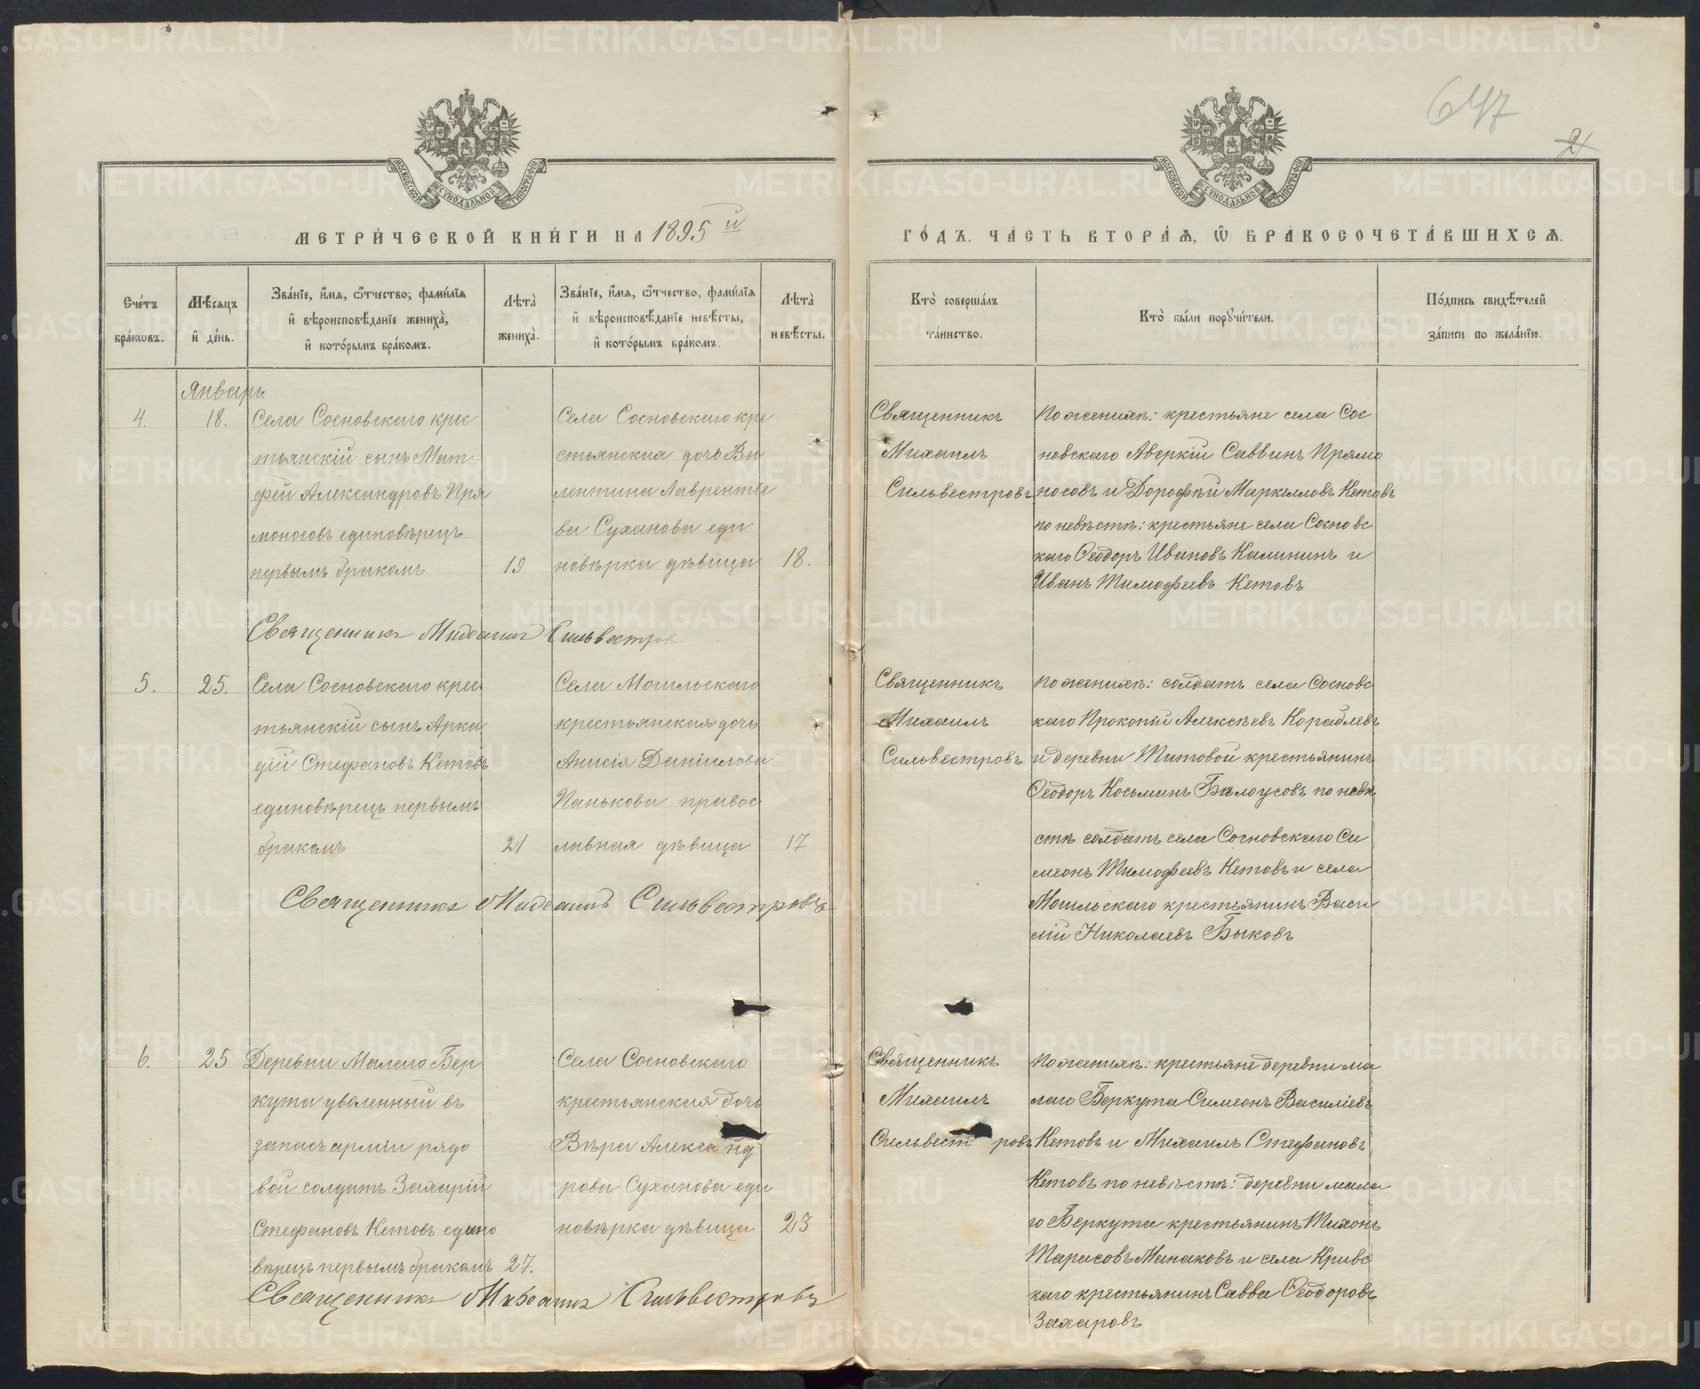 647
2
МЕТРИ́ЧЕСКОЙ КНИ́ГИ НА 1895 й
ГО́ДЪ. ЧА́СТЬ ВТОРА́Я, Ѡ҆ БРАКОСОЧЕТА́ВШИХСЯ.
Сче́тъ бра́кѡвъ.
Мѣ́сяцъ и҆ де́нь.
Зва́нїе, и҆́мя, ѻ҆́тчество, фами́лїя
и҆ вѣроисповѣ́данїе жениха̀,
и҆ кото́рымъ бра́комъ.
Лѣта̀ жениха̀.
Зва́нїе, и҆́мя, ѻ҆́тчество, фами́лїя
и҆ вѣроисповѣ́данїе невѣ́сты,
и҆ кото́рымъ бра́комъ.
Лѣта̀ невѣ́сты.
Кто̀ соверша́лъ
та́инство.
Кто̀ бы́ли порꙋчи́тели.
По́дпись свидѣ́телей
за́писи по жела́нїю.
Январь
4.
18.
Села Сосновскаго крес
тьянскій сынъ Мат
фей Александровъ Пря
моносовъ единовѣрецъ
первымъ бракомъ
19
Села Сосновскаго кре
стьянская дочь Ва
лентина Лаврентье
ва Суханова еди
новѣрка дѣвица
18.
Священникъ
Михаилъ
Сильвестровъ
по женихѣ: крестьяне села Сос
новскаго Аверкій Саввинъ Прямо
носовъ и Дорофѣй Маркелловъ Кетовъ
по невѣстѣ: крестьяне села Сосновс
каго Ѳеодоръ Ивановъ Калининъ и
Иванъ Тимофеевъ Кетовъ
Священникъ Михаилъ Сильвестров
5.
25.
Села Сосновскаго крес
тьянскій сынъ Арка
дій Стефановъ Кетовъ
единовѣрецъ первымъ
бракомъ
21
Села Могильскаго
крестьянская дочь
Анисія Даніилова
Панькова правос
лавная дѣвица
17
Священникъ
Михаилъ
Сильвестровъ
по женихѣ: солдатъ села Сосновс
каго Прокопій Алексѣевъ Кораблевъ
и деревни Титовой крестьянинъ
Ѳеодоръ Косьминъ Бѣлоусовъ по невѣ
стѣ солдатъ села Сосновскаго Си
меонъ Тимофеевъ Кетовъ и села
Могильскаго крестьянинъ Васи
лій Николаевъ Быковъ
Священникъ Михаилъ Сильвестровъ
6.
25
Деревни Малаго Бер
кута уволенный въ
запасъ арміи рядо
вой солдатъ Захарій
Стефановъ Кетовъ едино
вѣрецъ первымъ бракомъ
27.
Села Сосновскаго
крестьянская дочь
Вѣра Александ
рова Суханова еди
новѣрка дѣвица
23
Священникъ
Михаилъ
Сильвестровъ
по женихѣ: крестьяне деревни ма
лаго Беркута Симеонъ Василіевъ
Кетовъ и Михаилъ Стефановъ
Кетовъ по невѣстѣ: деревни мала
го Беркута крестьянинъ Тихонъ
Тарасовъ Манаковъ и села Кривс
каго крестьянинъ Савва Ѳеодоровъ
Захаровъ
Священникъ Михаилъ Сильвестровъ